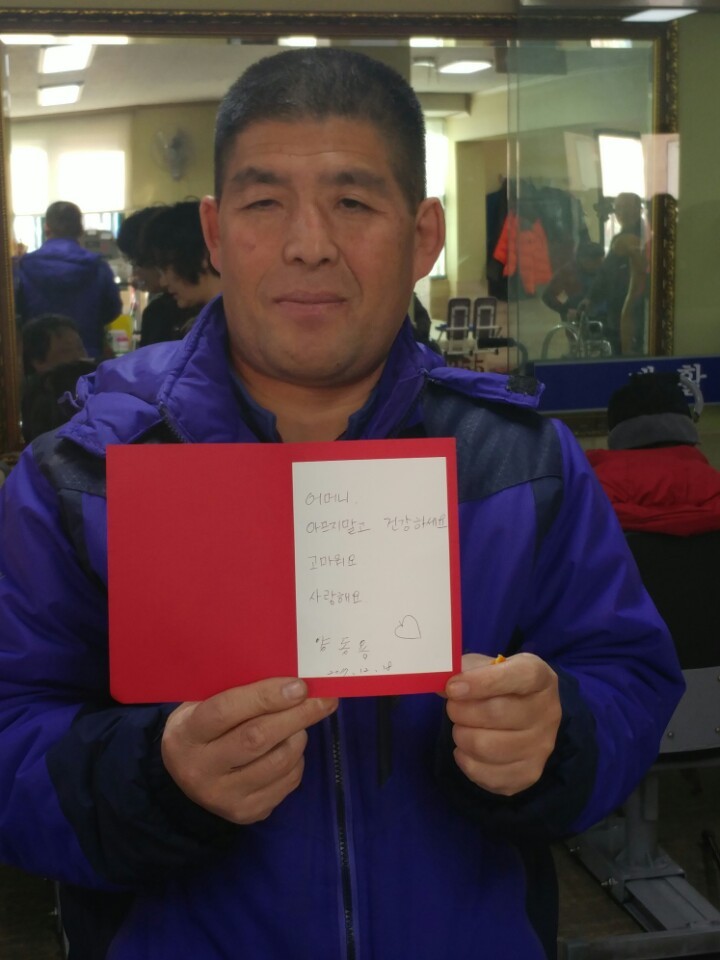 어머니.
아프지말고 건강하세요
고마워요
사랑해요
양 동 용
생 활